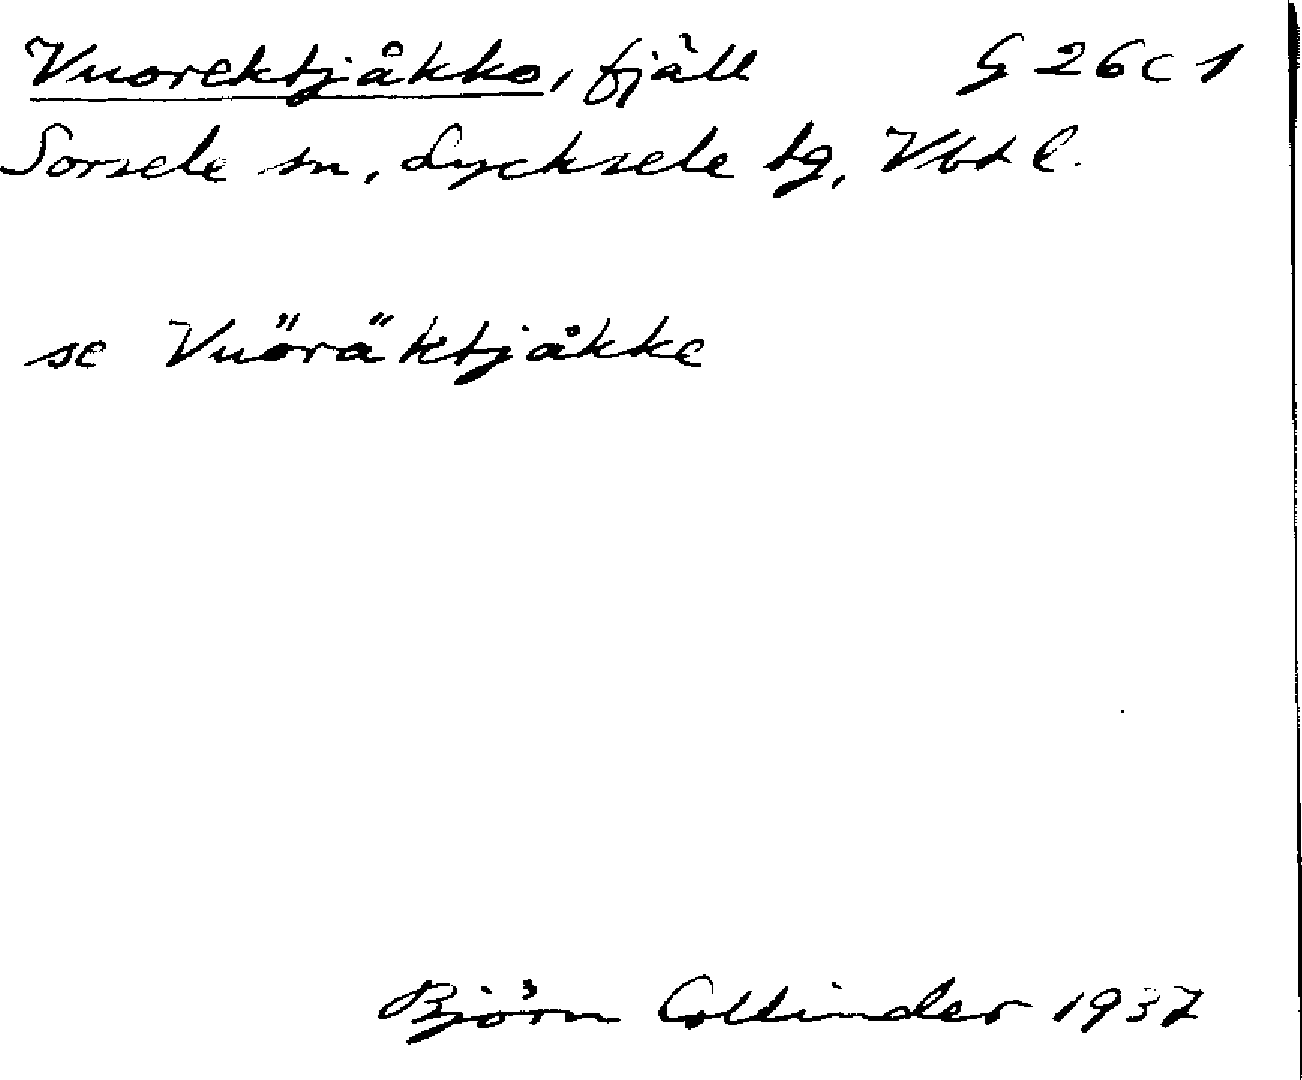 Vuorektjåkko, fjäll G 26 c 1
Sorsele sn, Lycksele tg, Vbt l.
se Vuöräktjåkke
Björn Collinder 1937